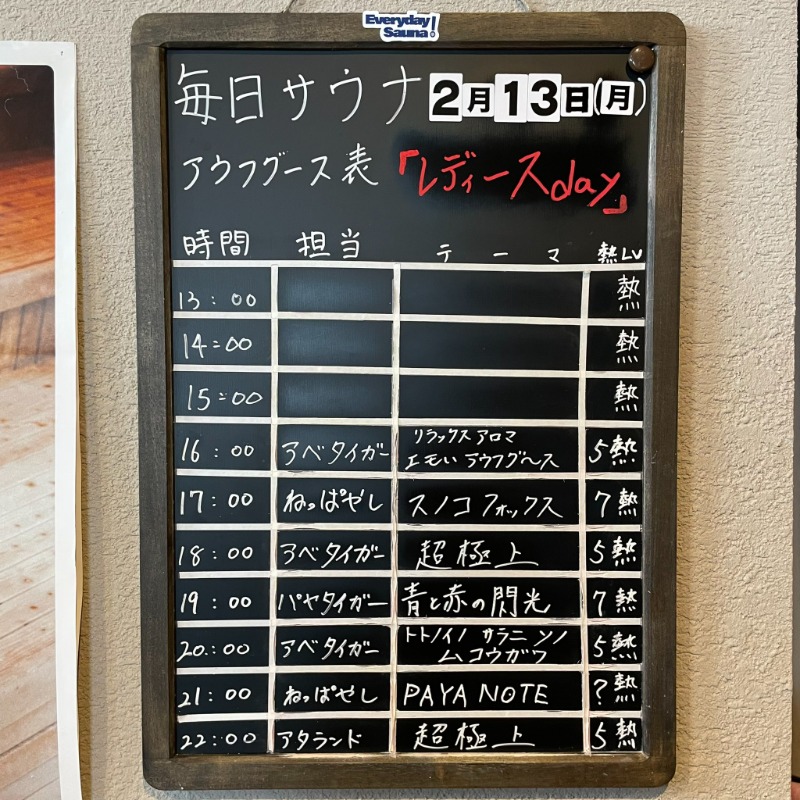 Everyday
Sauna!
毎日サウナ 2月13日(月)
アウフグース表 「レディースday」
時間 担当 テーマ 熱LV
13:00 熱
14:00 熱
15:00 熱
16:00 アベタイガー リラックスアロマ
エモいアウフグース 5熱
17:00 ねっぱやし スノコフォックス 7熱
18:00 アベタイガー 超極上 5熱
19:00 パヤタイガー 青と赤の閃光 7熱
20:00 アベタイガー トトノイノ サラニ ソノ
ムコウガワ 5熱
21:00 ねっぱやし PAYA NOTE ?熱
22:00 アタランド 超極上 5熱